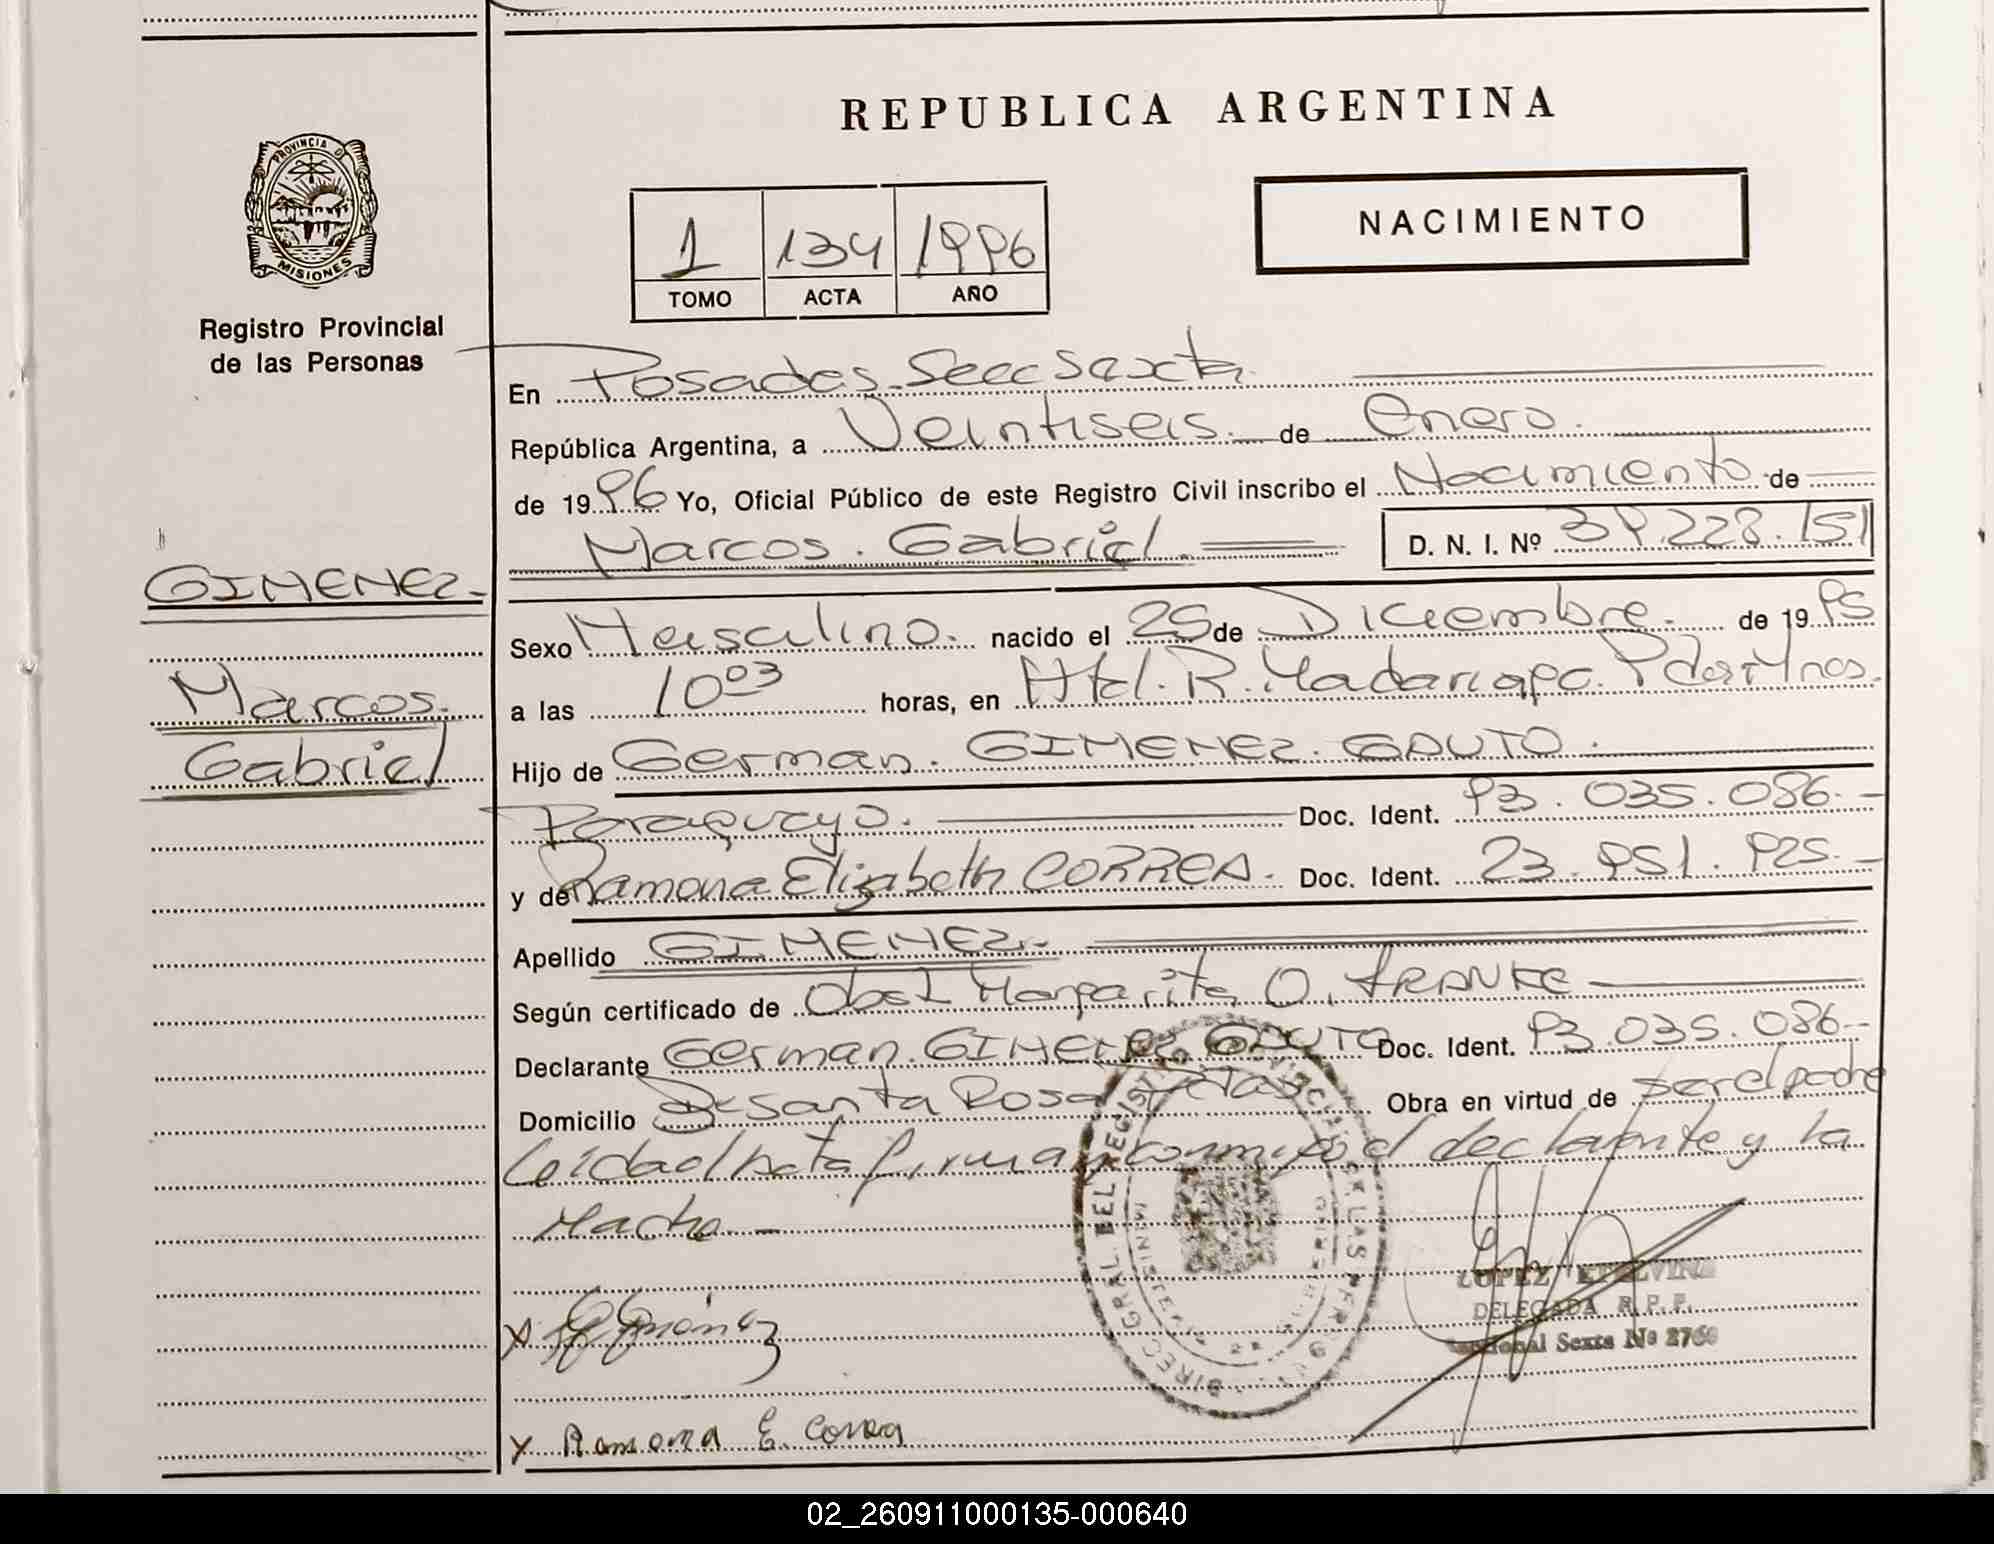 REPUBLICA ARGENTINA
PROVINCIA DE
MISIONES
Registro Provincial
de las Personas
1 134 1996
TOMO ACTA AÑO
NACIMIENTO
En Posadas Secc Sexta
República Argentina, a Veintiseis de Enero
de 1996 Yo, Oficial Público de este Registro Civil inscribo el Nacimiento de
Marcos Gabriel D. N. I. Nº 39.228.151
GIMENEZ
Marcos
Gabriel
Sexo Masculino nacido el 25 de Diciembre de 1995
a las 10 03 horas, en Htal. R. Madariaga Pdas Mnes.
Hijo de German GIMENEZ GAUTO
Paraguayo. Doc. Ident. 93.035.086
y de Ramona Elizabeth CORREA. Doc. Ident. 23.951.925
Apellido GIMENEZ
Según certificado de Obst Margarita O. FRANKE
Declarante German GIMENEZ GAUTO Doc. Ident. 93.035.086
Domicilio Santa Rosa Obra en virtud de ser el padre
Leida el Acta firman conmigo el declarante y la
Madre
LOPEZ ETELVINA
DELEGADA R.P.P.
Seccional Sexta Nº 2760
x Gimenez
x Ramona E. Correa
02_260911000135-000640